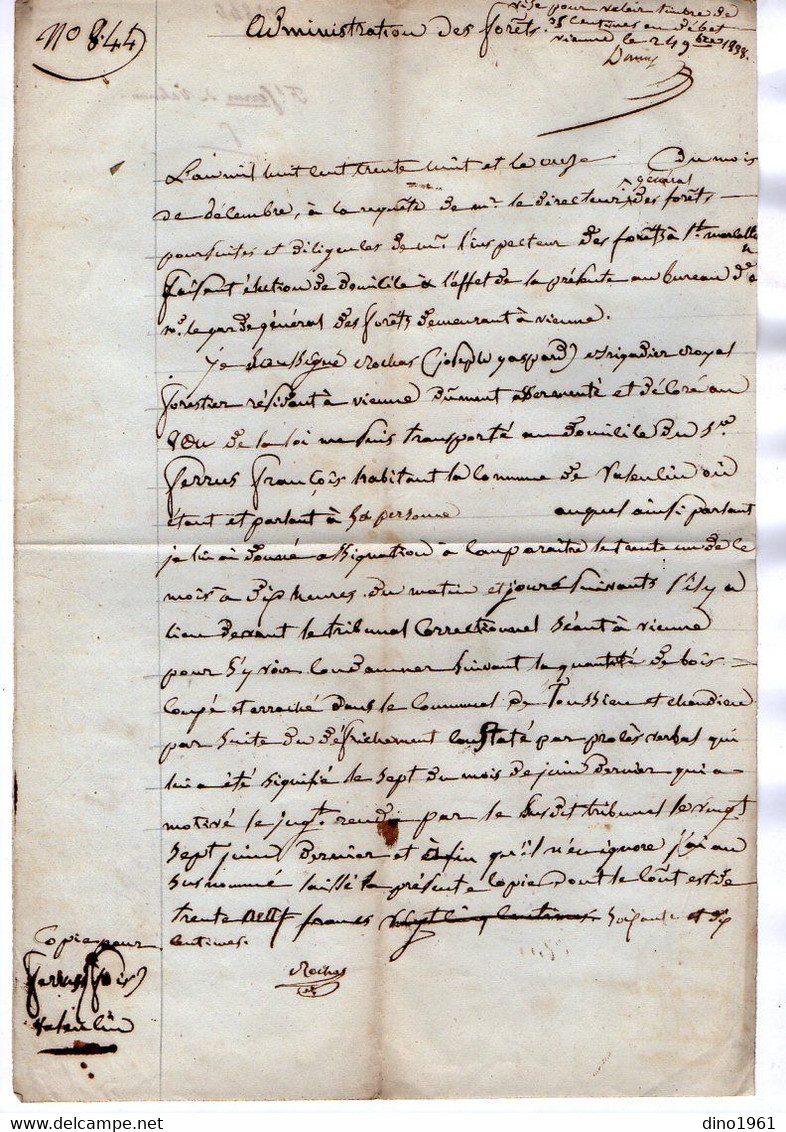 No 844
Administration des forêts.
visé pour valoir timbre de
35 centimes en débet
vienne le 24 9bre 1838.
L'an mil huit cent trente huit et le onze Du mois
de décembre, à la requête de mr. le directeur général des forêts
poursuites et diligences de mr. l'inspecteur des forêts à st. marcellin
faisant élection de domicile à l'effet de la présente au bureau de
mr. le garde général des forêts demeurant à vienne.
je soussigné Rochas (joseph gaspard) Brigadier Royal
forestier résidant à vienne dûment assermenté et décoré au
vœu de la loi me suis transporté au domicile du sr.
ferrus françois habitant la commune de Valencin où
étant et parlant à sa personne auquel ainsi parlant
je lui ai donné assignation à comparaître le trente un de ce
mois à dix heures du matin et jours suivants s'il y a
lieu devant le tribunal Correctionnel séant à vienne
pour s'y voir condamner suivant la quantité de bois
coupé et arraché dans le communal de Toussieu et chandieu
par suite du défrichement constaté par procès verbal qui
lui a été signifié le sept du mois de juin dernier qui a
motivé le jugt. rendu par le susdit tribunal le vingt
sept juin dernier et afin qu'il n'en ignore j'ai au
susnommé laissé la présente copie dont le coût est de
trente neuf francs vingt cinq centimes soixante et dix
centimes.
Rochas
Copie pour
ferrus (fois)
valencin
dino1961